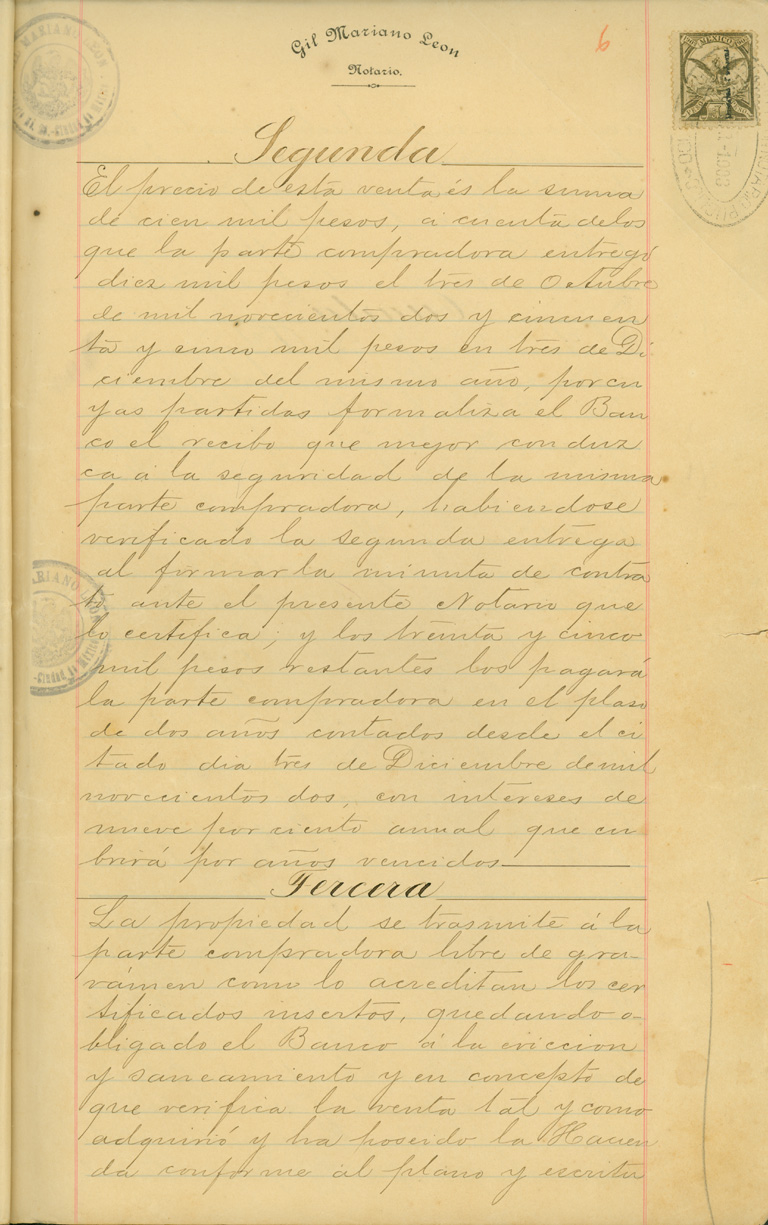 Gil Mariano Leon
Notario.
6
MEXICO
Segunda
El precio de esta venta és la suma
de cien mil pesos, á cuenta delos
que la parte compradora entregó
diez mil pesos el tres de Octubre
de mil novecientos dos y cincuen
ta y cinco mil pesos en tres de Di
ciembre del mismo año, por cu
yas partidas formaliza el Ban
co el recibo que mejor conduz
ca á la seguridad de la misma
parte compradora, habiendose
verificado la segunda entrega
al firmar la minuta de contra
to ante el presente Notario que
lo certifica; y los treinta y cinco
mil pesos restantes los pagará
la parte compradora en el plaso
de dos años contados desde el ci
tado dia tres de Diciembre de mil
novecientos dos, con intereses de
nueve por ciento anual que cu
brirá por años vencidos
Tercera
La propiedad se trasmite á la
parte compradora libre de gra-
vámen como lo acreditan los cer
tificados insertos, quedando o-
bligado el Banco á la eviccion
y saneamiento y en concepto de
que verifica la venta tal y como
adquirió y ha poseido la Hacien
da conforme al plano y escritu